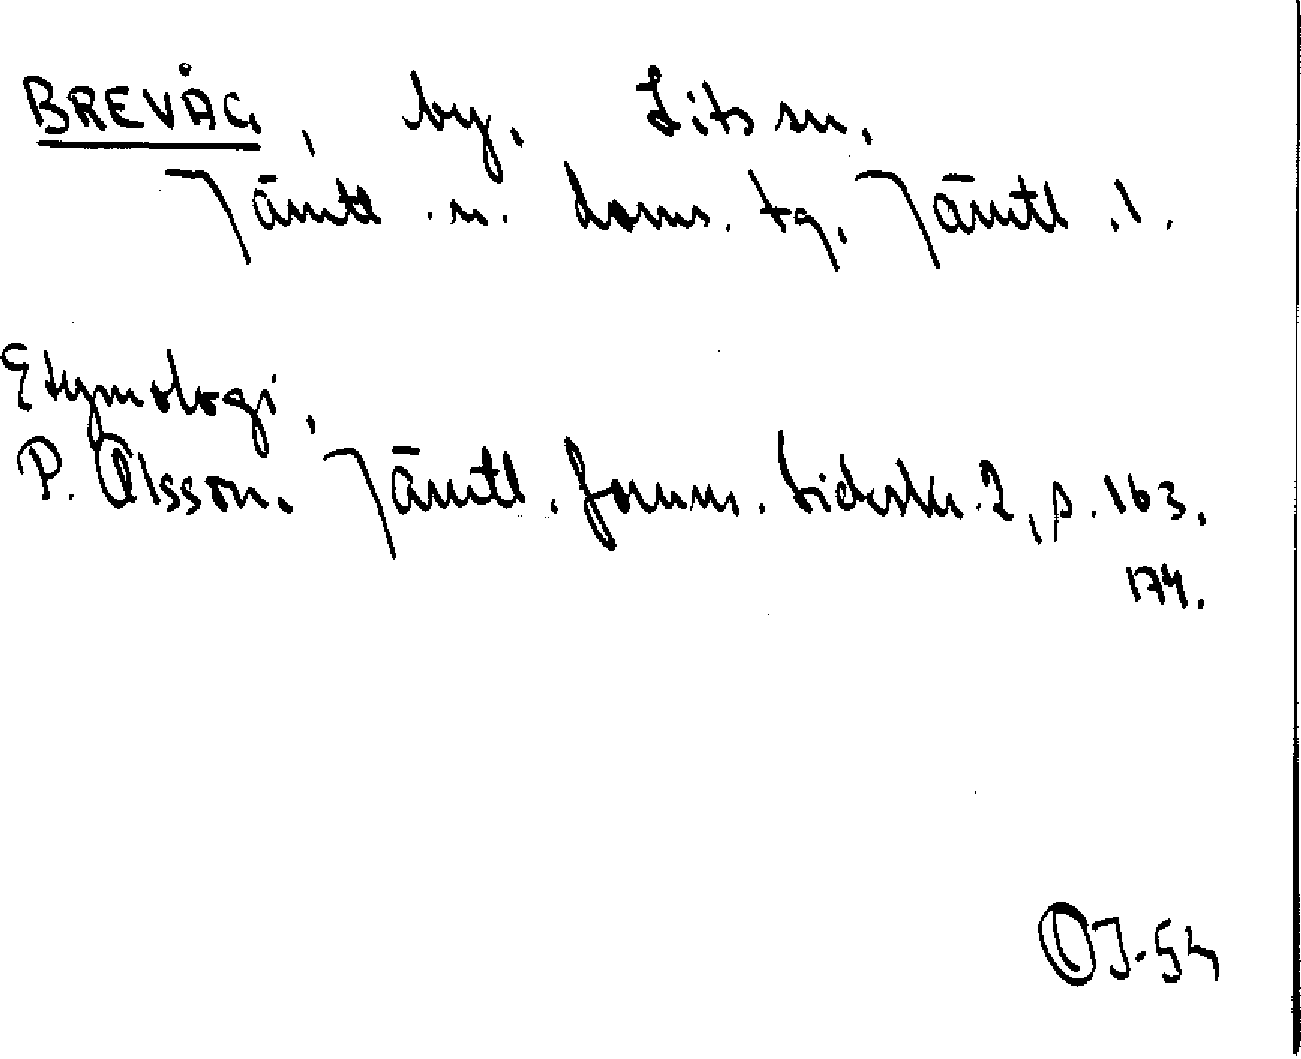 BREVÅG, by. Lits sn.
Jämtl. n. doms. tg. Jämtl. l.
Etymologi,
P. Olsson. Jämtl. fornm. tidskr. 2, s. 163.
174.
OJ-54